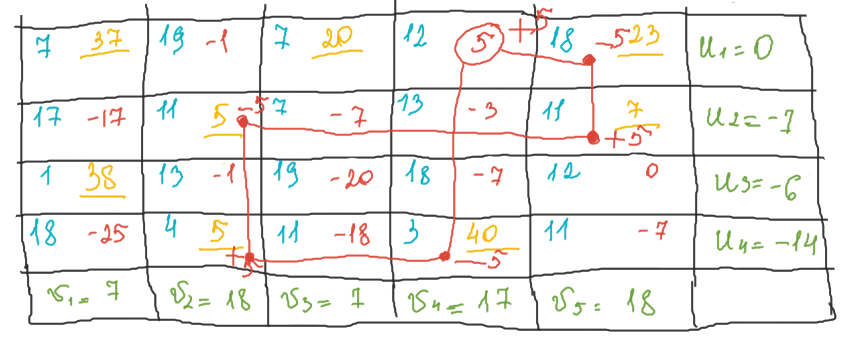 7 37 19 -1 7 20 12 5 +5 18 -5 23 U1=0
17 -17 11 5 -5 7 -7 13 -3 11 7 +5 U2=-7
1 38 13 -1 19 -20 18 -7 12 0 U3=-6
18 -25 4 5 +5 11 -18 3 40 -5 11 -7 U4=-14
v1=7 v2=18 v3=7 v4=17 v5=18